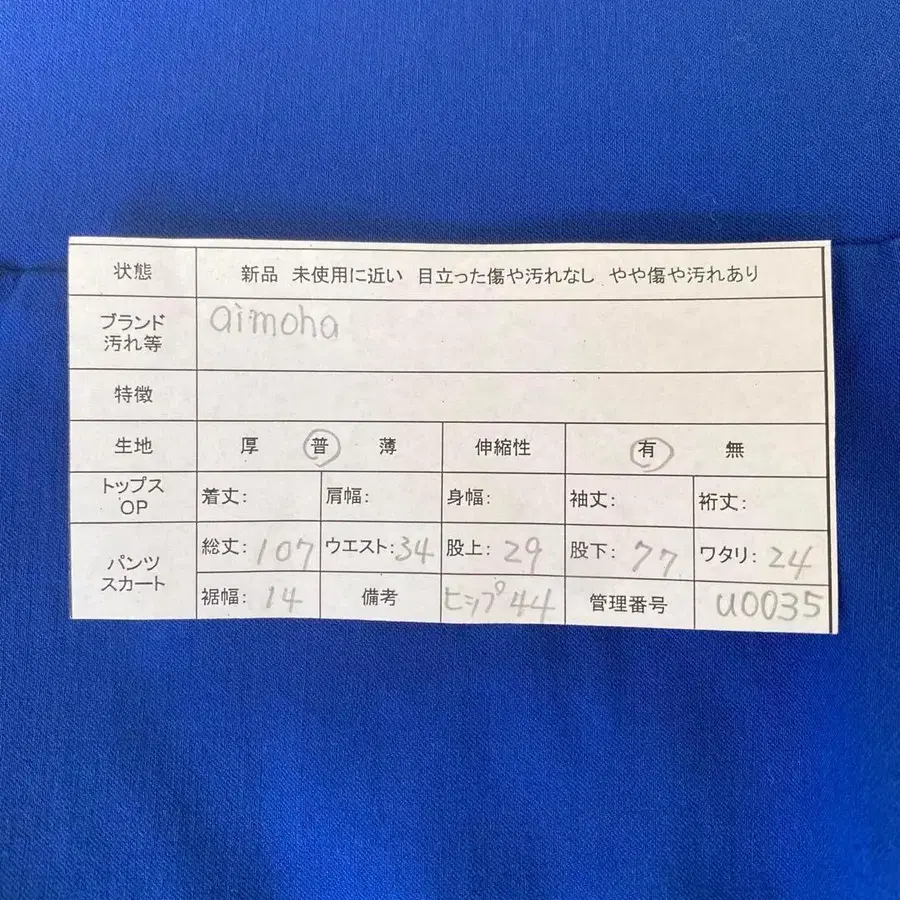 状態 新品 未使用に近い 目立った傷や汚れなし やや傷や汚れあり
ブランド
汚れ等
aimoha
特徴
生地 厚 普 薄 伸縮性 有 無
トップス
OP
着丈: 肩幅: 身幅: 袖丈: 裄丈:
パンツ
スカート
総丈: 107 ウエスト: 34 股上: 29 股下: 77 ワタリ: 24
裾幅: 14 備考 ヒップ44 管理番号 U0035